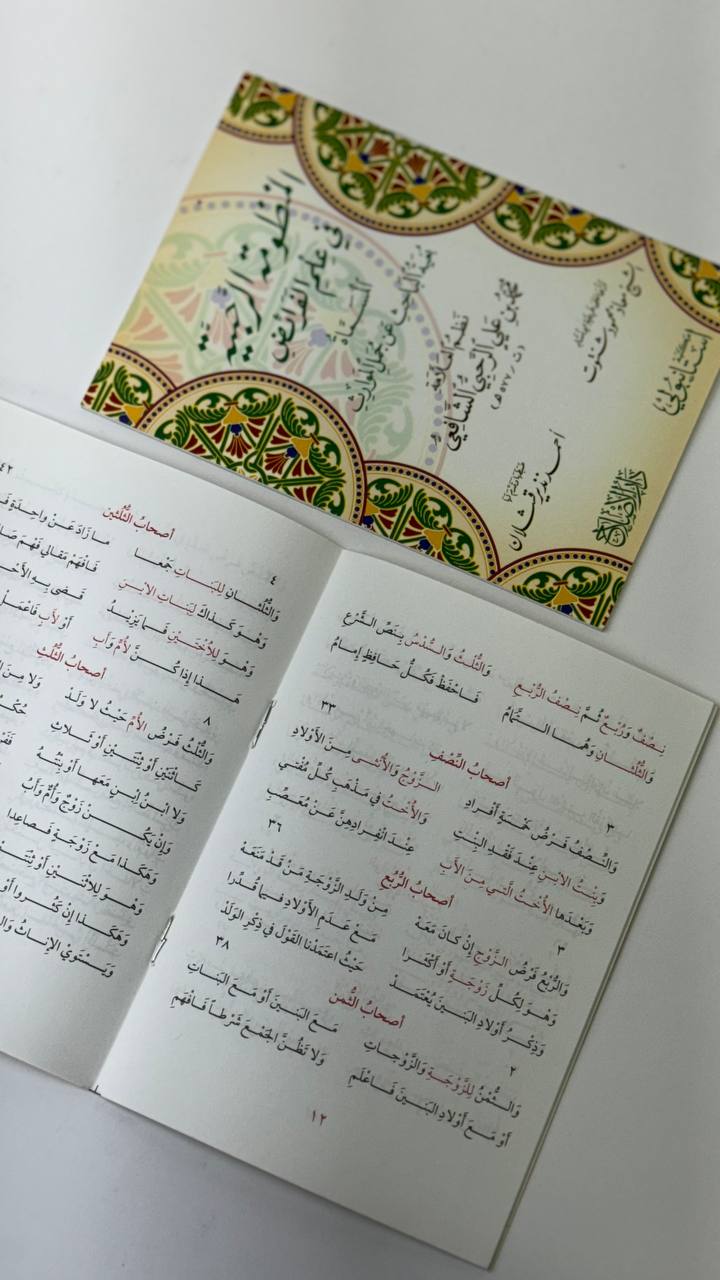 المنظومة الرحبية
في علم الفرائض
المسماة
بغية الباحث عن جمل الموارث
نظم العلامة
محمد بن علي الرحبي الشافعي
(ت ٥٧٧ هـ)
أحمد نذير قتلان
نِصْفٌ وَرُبْعٌ ثُمَّ نِصْفُ الرُّبْعِ وَالثُّلْثُ وَالسُّدْسُ بِنَصِّ الشَّرْعِ
وَالثُّلُثَانِ وَهُمَا التَّمَامُ فَاحْفَظْ فَكُلُّ حَافِظٍ إِمَامُ
٣٣
أصحابُ النِّصْفِ
٣
وَالنِّصْفُ فَرْضُ خَمْسَةٍ أَفْرَادِ الزَّوْجُ وَالأُنْثَى مِنَ الأَوْلَادِ
وَبِنْتُ الابْنِ عِنْدَ فَقْدِ البِنْتِ وَالأُخْتُ فِي مَذْهَبِ كُلِّ مُفْتِي
وَبَعْدَهَا الأُخْتُ الَّتِي مِنَ الأَبِ عِنْدَ انْفِرَادِهِنَّ عَنْ مُعَصِّبِ
٣٦
أصحابُ الرُّبُعِ
٣
وَالرُّبْعُ فَرْضُ الزَّوْجِ إِنْ كَانَ مَعَهْ مِنْ وَلَدِ الزَّوْجَةِ مَنْ قَدْ مَنَعَهْ
وَهْوَ لِكُلِّ زَوْجَةٍ أَوْ أَكْثَرَا مَعْ عَدَمِ الأَوْلَادِ فِيمَا قُدِّرَا
وَذِكْرُ أَوْلَادِ البَنِينَ يُعْتَمَدْ حَيْثُ اعْتَمَدْنَا القَوْلَ فِي ذِكْرِ الوَلَدْ
٣٨
أصحابُ الثُّمن
٢
وَالثُّمْنُ لِلزَّوْجَةِ وَالزَّوْجَاتِ مَعَ البَنِينَ أَوْ مَعَ البَنَاتِ
أَوْ مَعَ أَوْلَادِ البَنِينَ فَاعْلَمِ وَلَا تَظُنَّ الجَمْعَ شَرْطاً فَافْهَمِ
١٢
٤٢
أصحابُ الثُّلُثين
٤
وَالثُّلُثَانِ لِلْبَنَاتِ جَمْعَا مَا زَادَ عَنْ وَاحِدَةٍ
وَهْوَ كَذَاكَ لِبَنَاتِ الابْنِ فَافْهَمْ مَقَالِي فَهْمَ
وَهْوَ لِلأُخْتَيْنِ فَمَا يَزِيدُ قَضَى بِهِ
هَذَا إِذَا كُنَّ لأُمٍّ وَأَبِ أَوْ لأَبٍ
أصحابُ الثُّلُثِ
٨
وَالثُّلْثُ فَرْضُ الأُمِّ حَيْثُ لَا وَلَدْ وَلَا مِنَ
كَاثْنَيْنِ أَوْ ثِنْتَيْنِ أَوْ ثَلَاثِ
وَلَا ابْنُ ابْنٍ مَعَهَا أَوْ بِنْتُهُ
وَإِنْ يَكُنْ زَوْجٌ وَأُمٌّ وَأَبُ
وَهَكَذَا مَعْ زَوْجَةٍ فَصَاعِدَا
وَهْوَ لِلاثْنَيْنِ أَوْ
وَهَكَذَا إِنْ كَثُرُوا أَوْ
وَيَسْتَوِي الإِنَاثُ